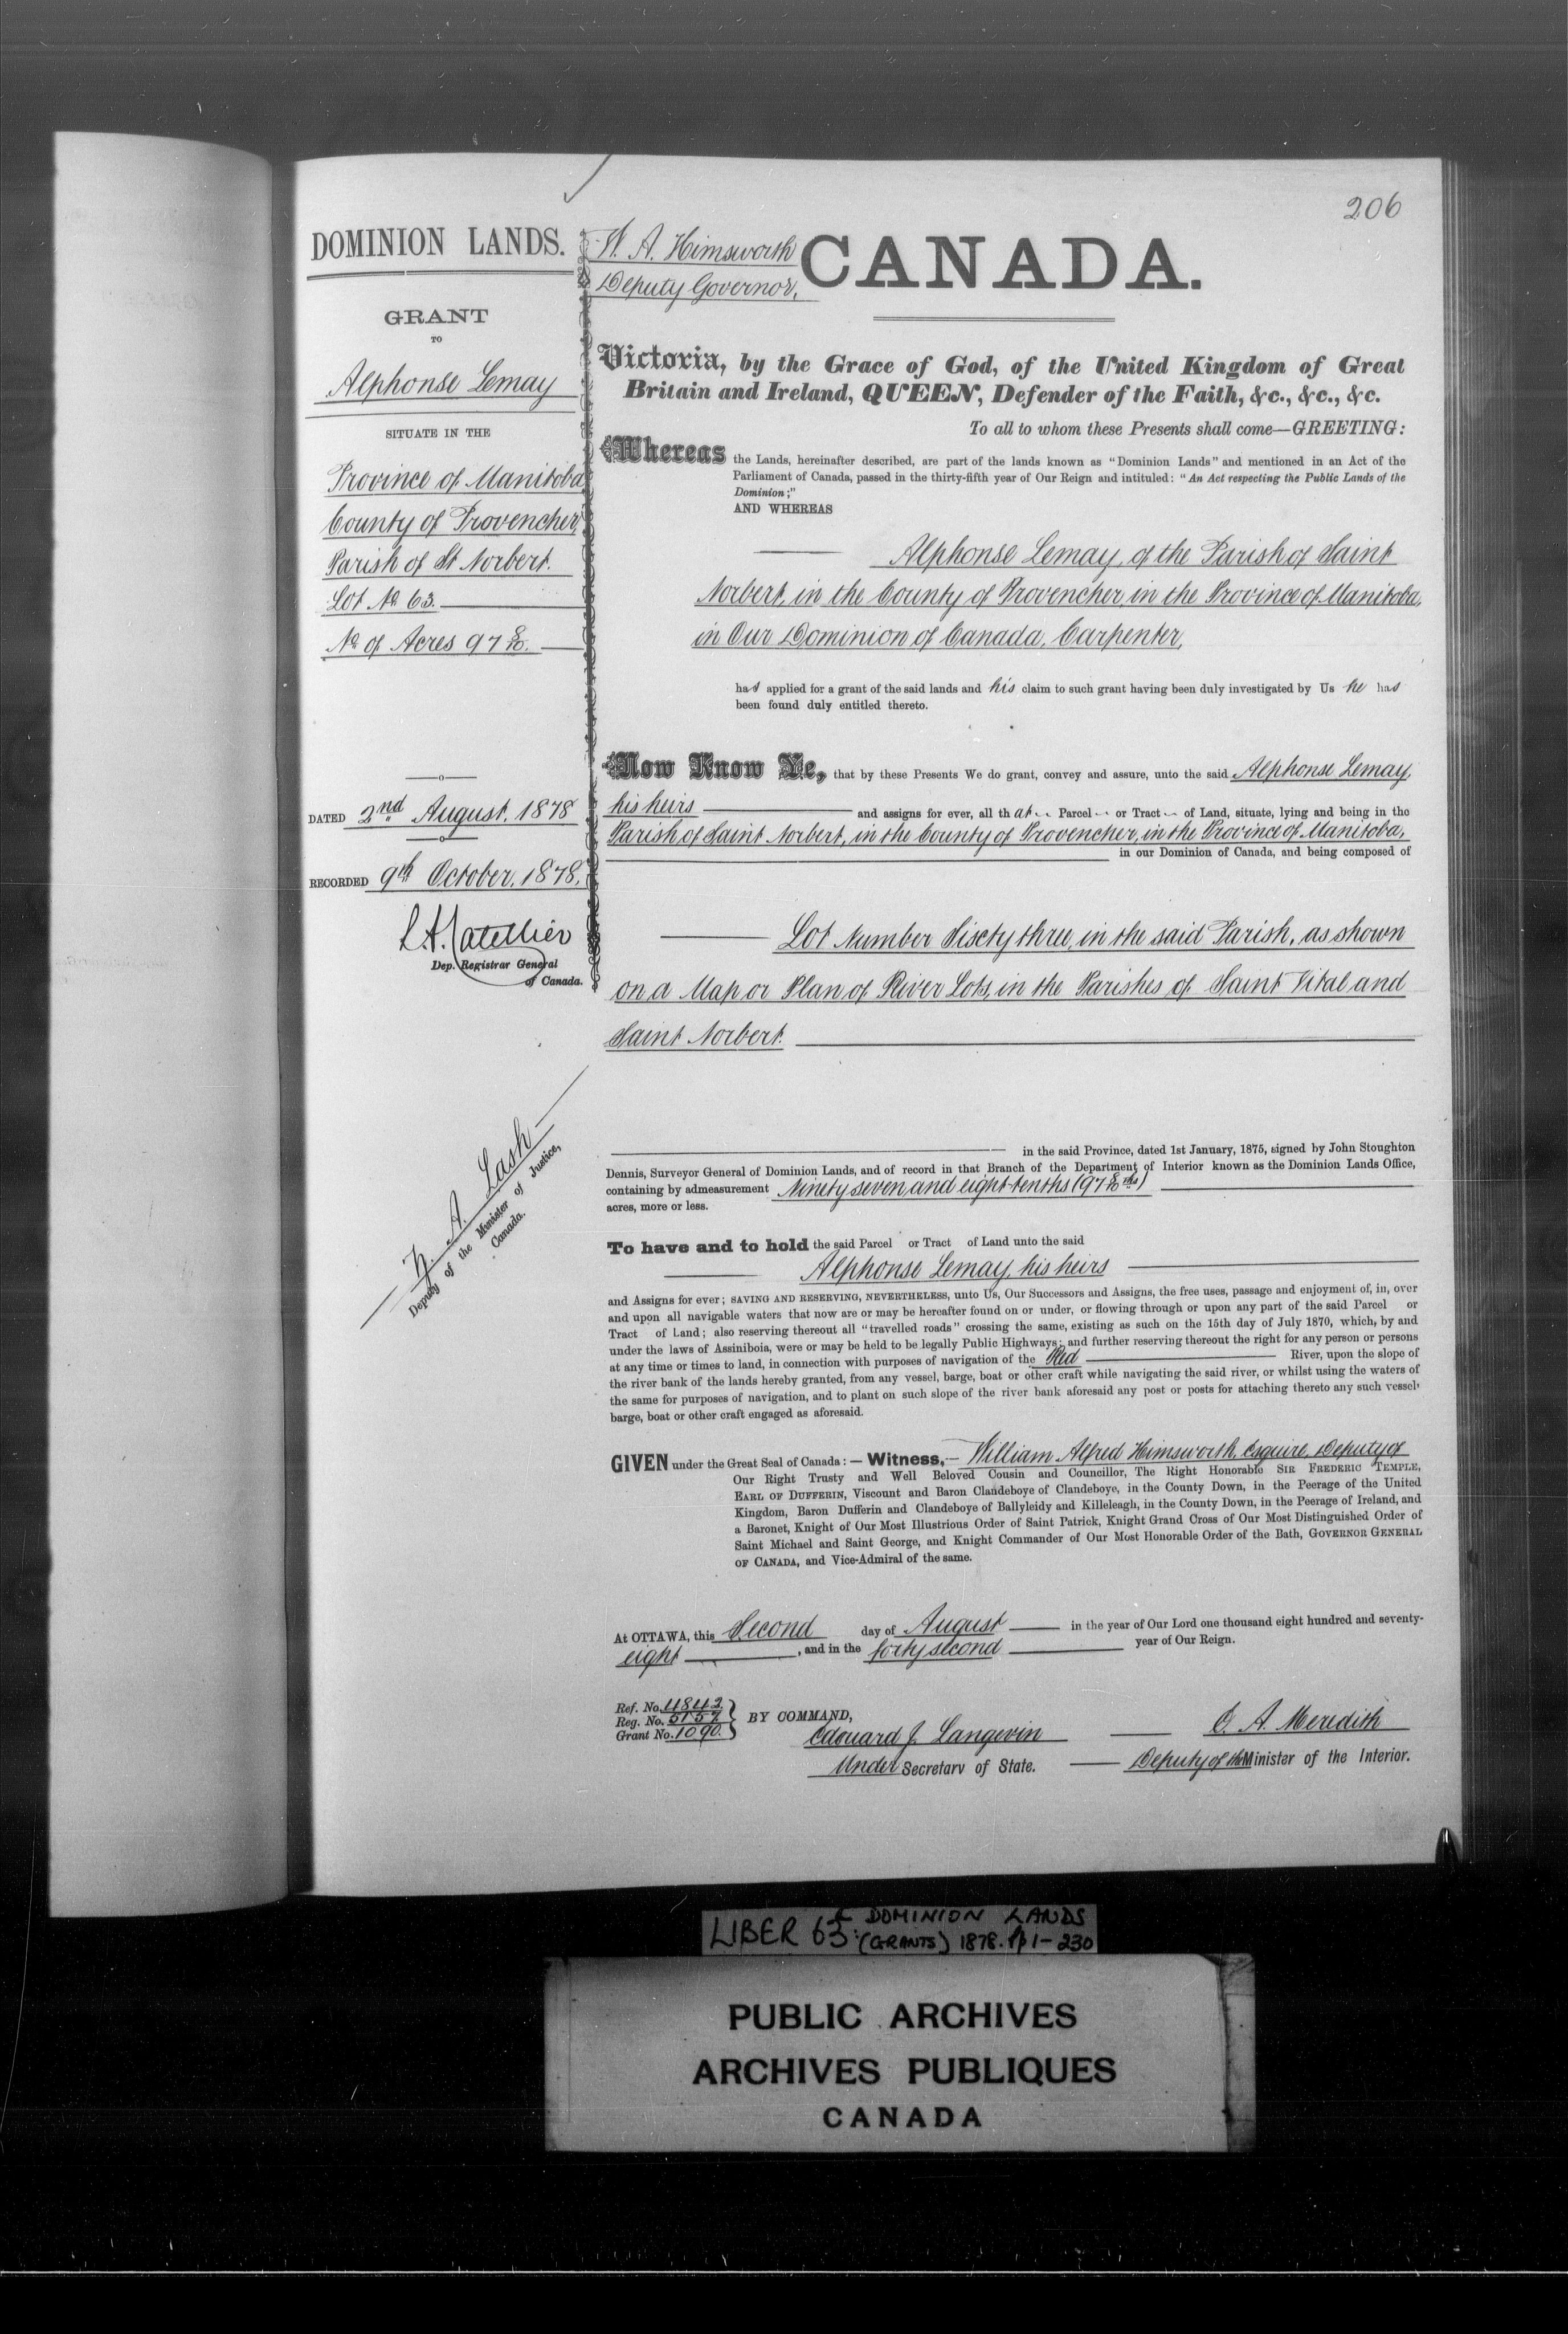 206
DOMINION LANDS.
GRANT
TO
Alphonse Lemay
SITUATE IN THE
Province of Manitoba
County of Provencher,
Parish of St Norbert.
Lot No 63.
No of Acres 97 8/10.
DATED 2nd August, 1878
RECORDED 9th October, 1878,
L.A. Catellier
Dep. Registrar General
of Canada.
Z. A. Lash
Deputy of the Minister of Justice,
Canada.
W. A. Himsworth
Deputy Governor,
CANADA.
Victoria, by the Grace of God, of the United Kingdom of Great
Britain and Ireland, QUEEN, Defender of the Faith, &c., &c., &c.
To all to whom these Presents shall come—GREETING:
Whereas the Lands, hereinafter described, are part of the lands known as "Dominion Lands" and mentioned in an Act of the
Parliament of Canada, passed in the thirty-fifth year of Our Reign and intituled: "An Act respecting the Public Lands of the
Dominion;"
AND WHEREAS
Alphonse Lemay, of the Parish of Saint
Norbert, in the County of Provencher, in the Province of Manitoba,
in Our Dominion of Canada, Carpenter,
has applied for a grant of the said lands and his claim to such grant having been duly investigated by Us he has
been found duly entitled thereto.
Now Know Ye, that by these Presents We do grant, convey and assure, unto the said Alphonse Lemay,
his heirs and assigns for ever, all that Parcel or Tract of Land, situate, lying and being in the
Parish of Saint Norbert, in the County of Provencher, in the Province of Manitoba,
in our Dominion of Canada, and being composed of
Lot Number Sixty three, in the said Parish, as shown
on a Map or Plan of River Lots, in the Parishes of Saint Vital and
Saint Norbert.
in the said Province, dated 1st January, 1875, signed by John Stoughton
Dennis, Surveyor General of Dominion Lands, and of record in that Branch of the Department of Interior known as the Dominion Lands Office,
containing by admeasurement Ninety seven and eight-tenths (97 8/10ths)
acres, more or less.
To have and to hold the said Parcel or Tract of Land unto the said
Alphonse Lemay, his heirs
and Assigns for ever; SAVING AND RESERVING, NEVERTHELESS, unto Us, Our Successors and Assigns, the free uses, passage and enjoyment of, in, over
and upon all navigable waters that now are or may be hereafter found on or under, or flowing through or upon any part of the said Parcel or
Tract of Land; also reserving thereout all "travelled roads" crossing the same, existing as such on the 15th day of July 1870, which, by and
under the laws of Assiniboia, were or may be held to be legally Public Highways; and further reserving thereout the right for any person or persons
at any time or times to land, in connection with purposes of navigation of the Red River, upon the slope of
the river bank of the lands hereby granted, from any vessel, barge, boat or other craft while navigating the said river, or whilst using the waters of
the same for purposes of navigation, and to plant on such slope of the river bank aforesaid any post or posts for attaching thereto any such vessel,
barge, boat or other craft engaged as aforesaid.
GIVEN under the Great Seal of Canada:—Witness,— William Alfred Himsworth, Esquire, Deputy of
Our Right Trusty and Well Beloved Cousin and Councillor, The Right Honorable SIR FREDERIC TEMPLE,
EARL OF DUFFERIN, Viscount and Baron Clandeboye of Clandeboye, in the County Down, in the Peerage of the United
Kingdom, Baron Dufferin and Clandeboye of Ballyleidy and Killeleagh, in the County Down, in the Peerage of Ireland, and
a Baronet, Knight of Our Most Illustrious Order of Saint Patrick, Knight Grand Cross of Our Most Distinguished Order of
Saint Michael and Saint George, and Knight Commander of Our Most Honorable Order of the Bath, GOVERNOR GENERAL
OF CANADA, and Vice-Admiral of the same.
At OTTAWA, this Second day of August in the year of Our Lord one thousand eight hundred and seventy-
eight, and in the forty second year of Our Reign.
Ref. No. 4842
Reg. No. 5157
Grant No. 1090.
BY COMMAND,
Edouard J. Langevin
Under Secretary of State.
E. A. Meredith
Deputy of the Minister of the Interior.
LIBER 63: DOMINION LANDS
(GRANTS) 1878. pp 1-230
PUBLIC ARCHIVES
ARCHIVES PUBLIQUES
CANADA